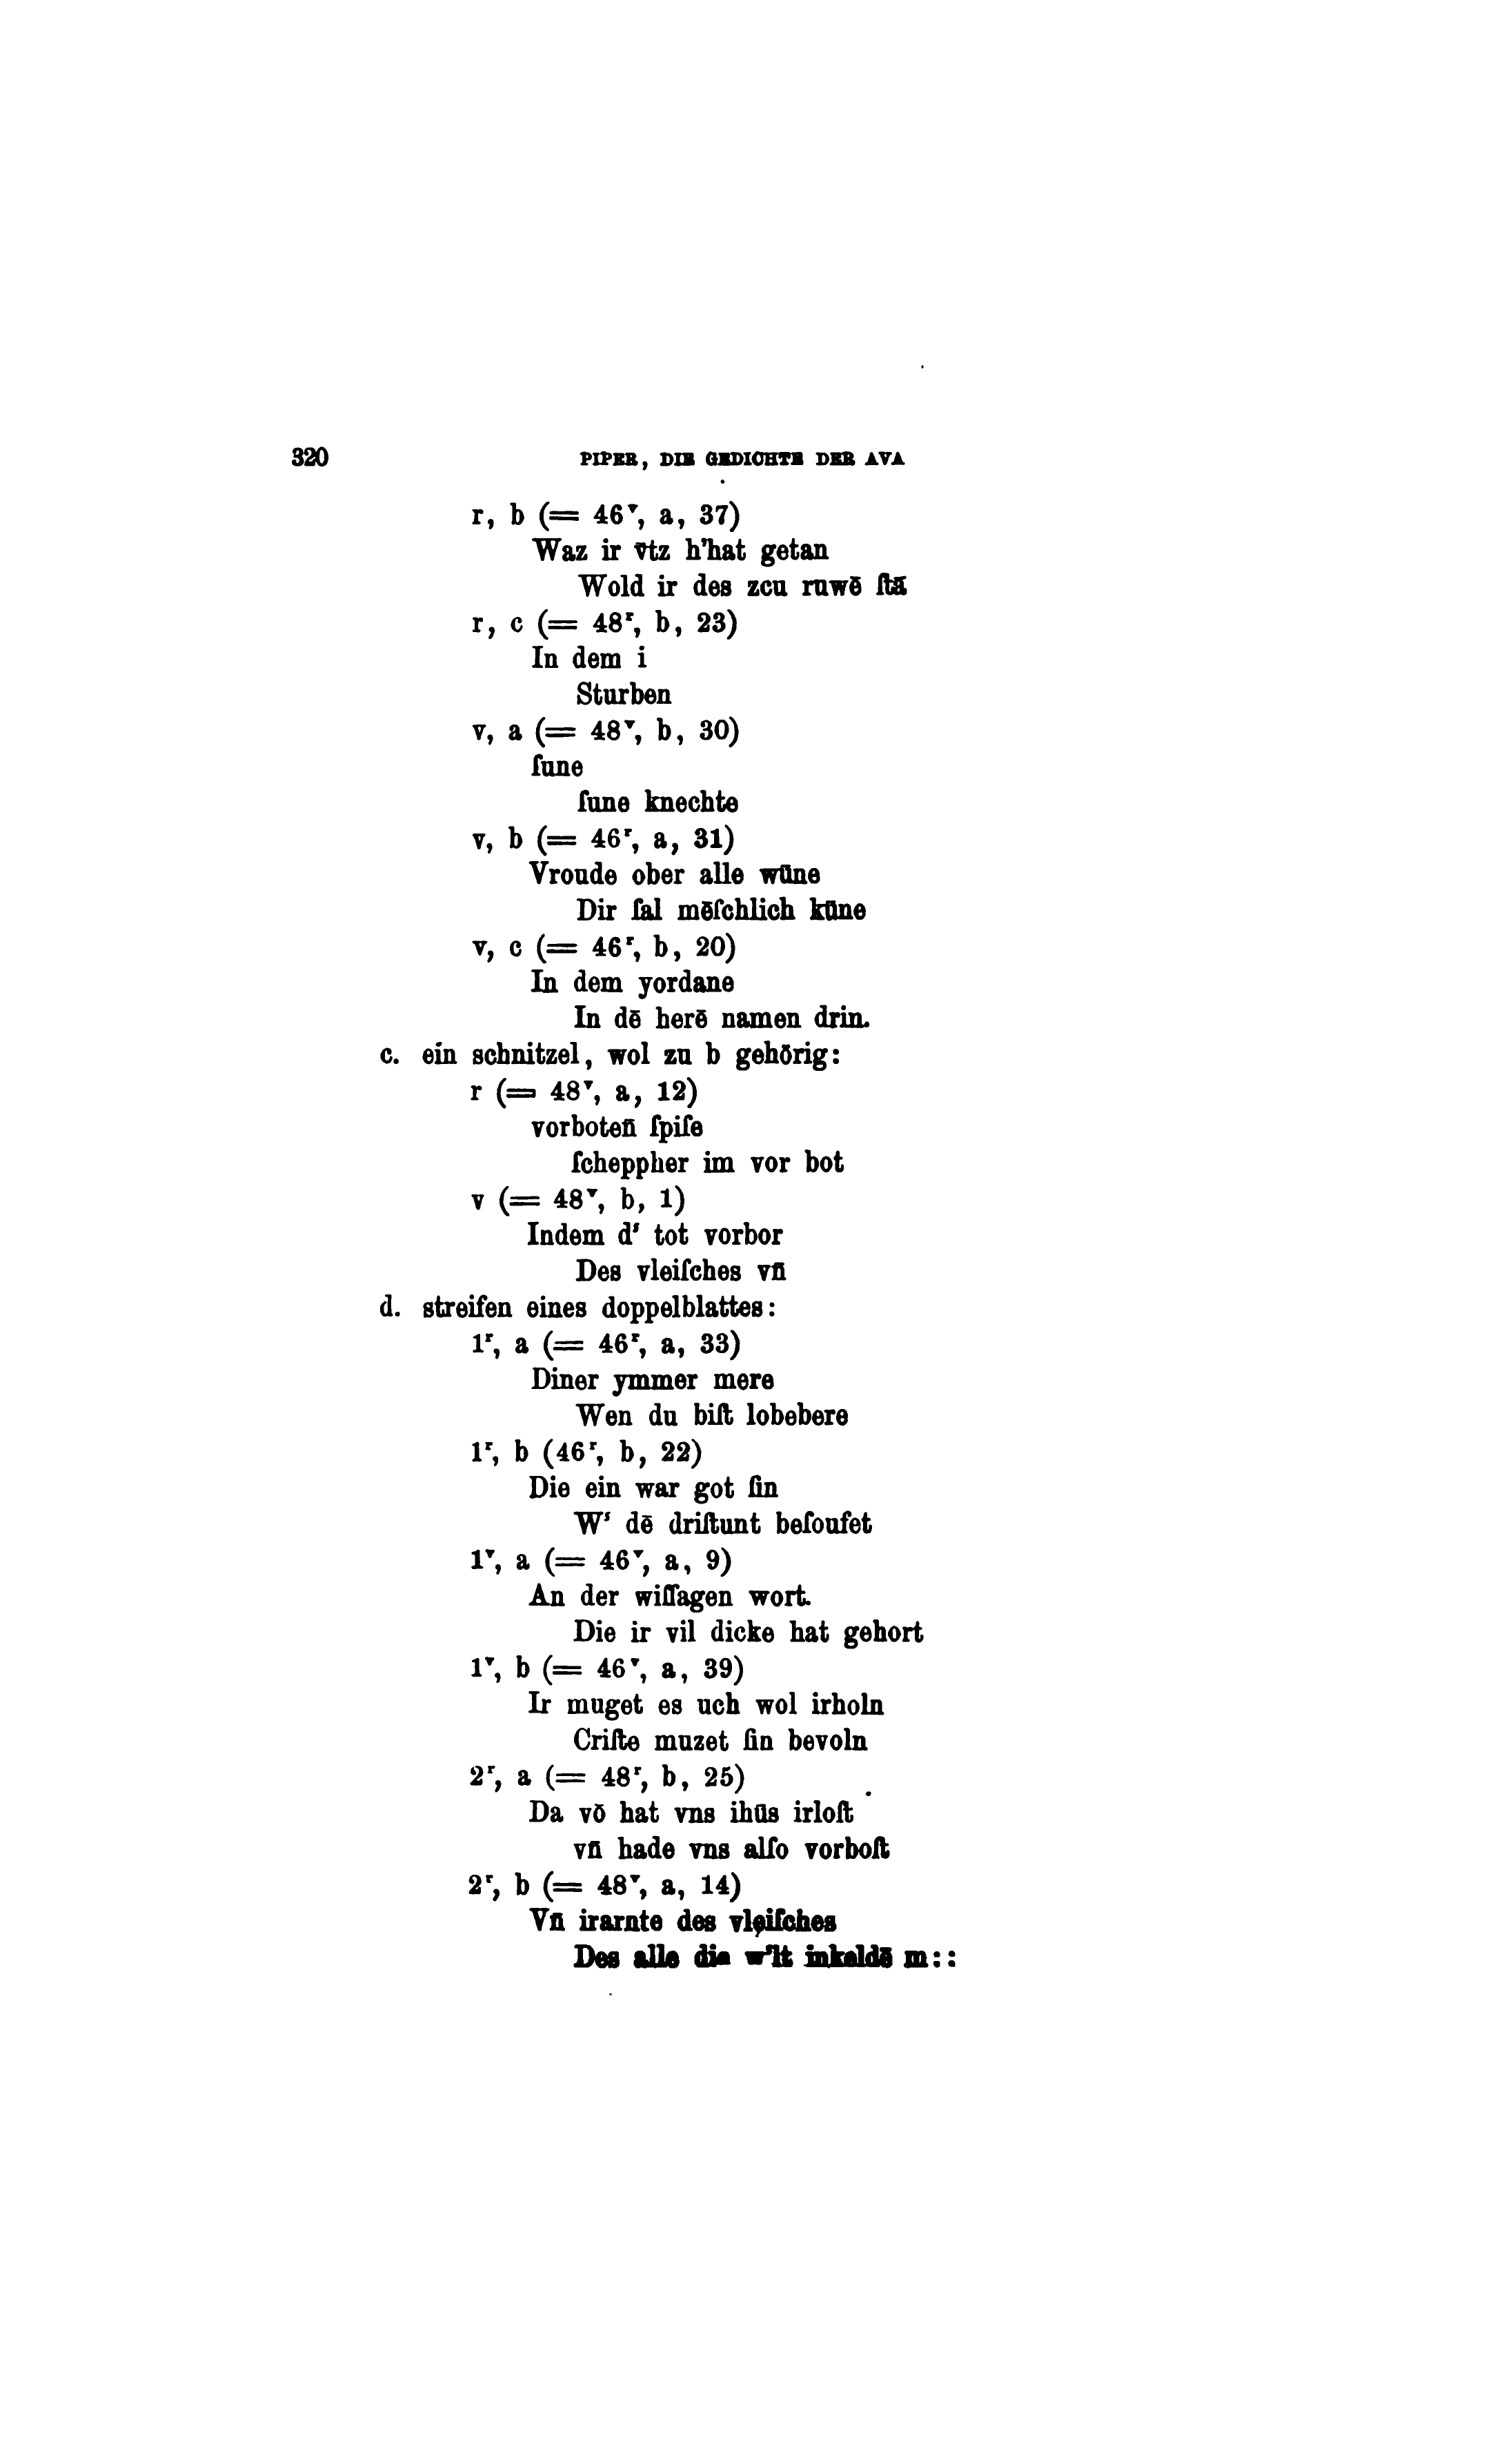 320 PIPER, DIE GEDICHTE DER AVA
r, b (= 46ᵛ, a, 37)
Waz ir v̄tz h'hat getan
Wold ir des zcu ruwē ſtā
r, c (= 48ʳ, b, 23)
In dem i
Sturben
v, a (= 48ᵛ, b, 30)
ſune
ſune knechte
v, b (= 46ʳ, a, 31)
Vroude ober alle wūne
Dir ſal mēſchlich kūne
v, c (= 46ʳ, b, 20)
In dem yordane
In dē herē namen drin.
c. ein schnitzel, wol zu b gehörig:
r (= 48ᵛ, a, 12)
vorboten̄ ſpiſe
ſcheppher im vor bot
v (= 48ᵛ, b, 1)
Indem d' tot vorbor
Des vleiſches vn̄
d. streifen eines doppelblattes:
1ʳ, a (= 46ʳ, a, 33)
Diner ymmer mere
Wen du biſt lobebere
1ʳ, b (46ʳ, b, 22)
Die ein war got ſin
W' dē driſtunt beſoufet
1ᵛ, a (= 46ᵛ, a, 9)
An der wiſſagen wort.
Die ir vil dicke hat gehort
1ᵛ, b (= 46ᵛ, a, 39)
Ir muget es uch wol irholn
Criſte muzet ſin bevoln
2ʳ, a (= 48ʳ, b, 25)
Da vō hat vns ihūs irloſt
vn̄ hade vns alſo vorboſt
2ʳ, b (= 48ᵛ, a, 14)
Vn̄ irarnte des vleiſches
Des alle die w'lt inkeldē m::